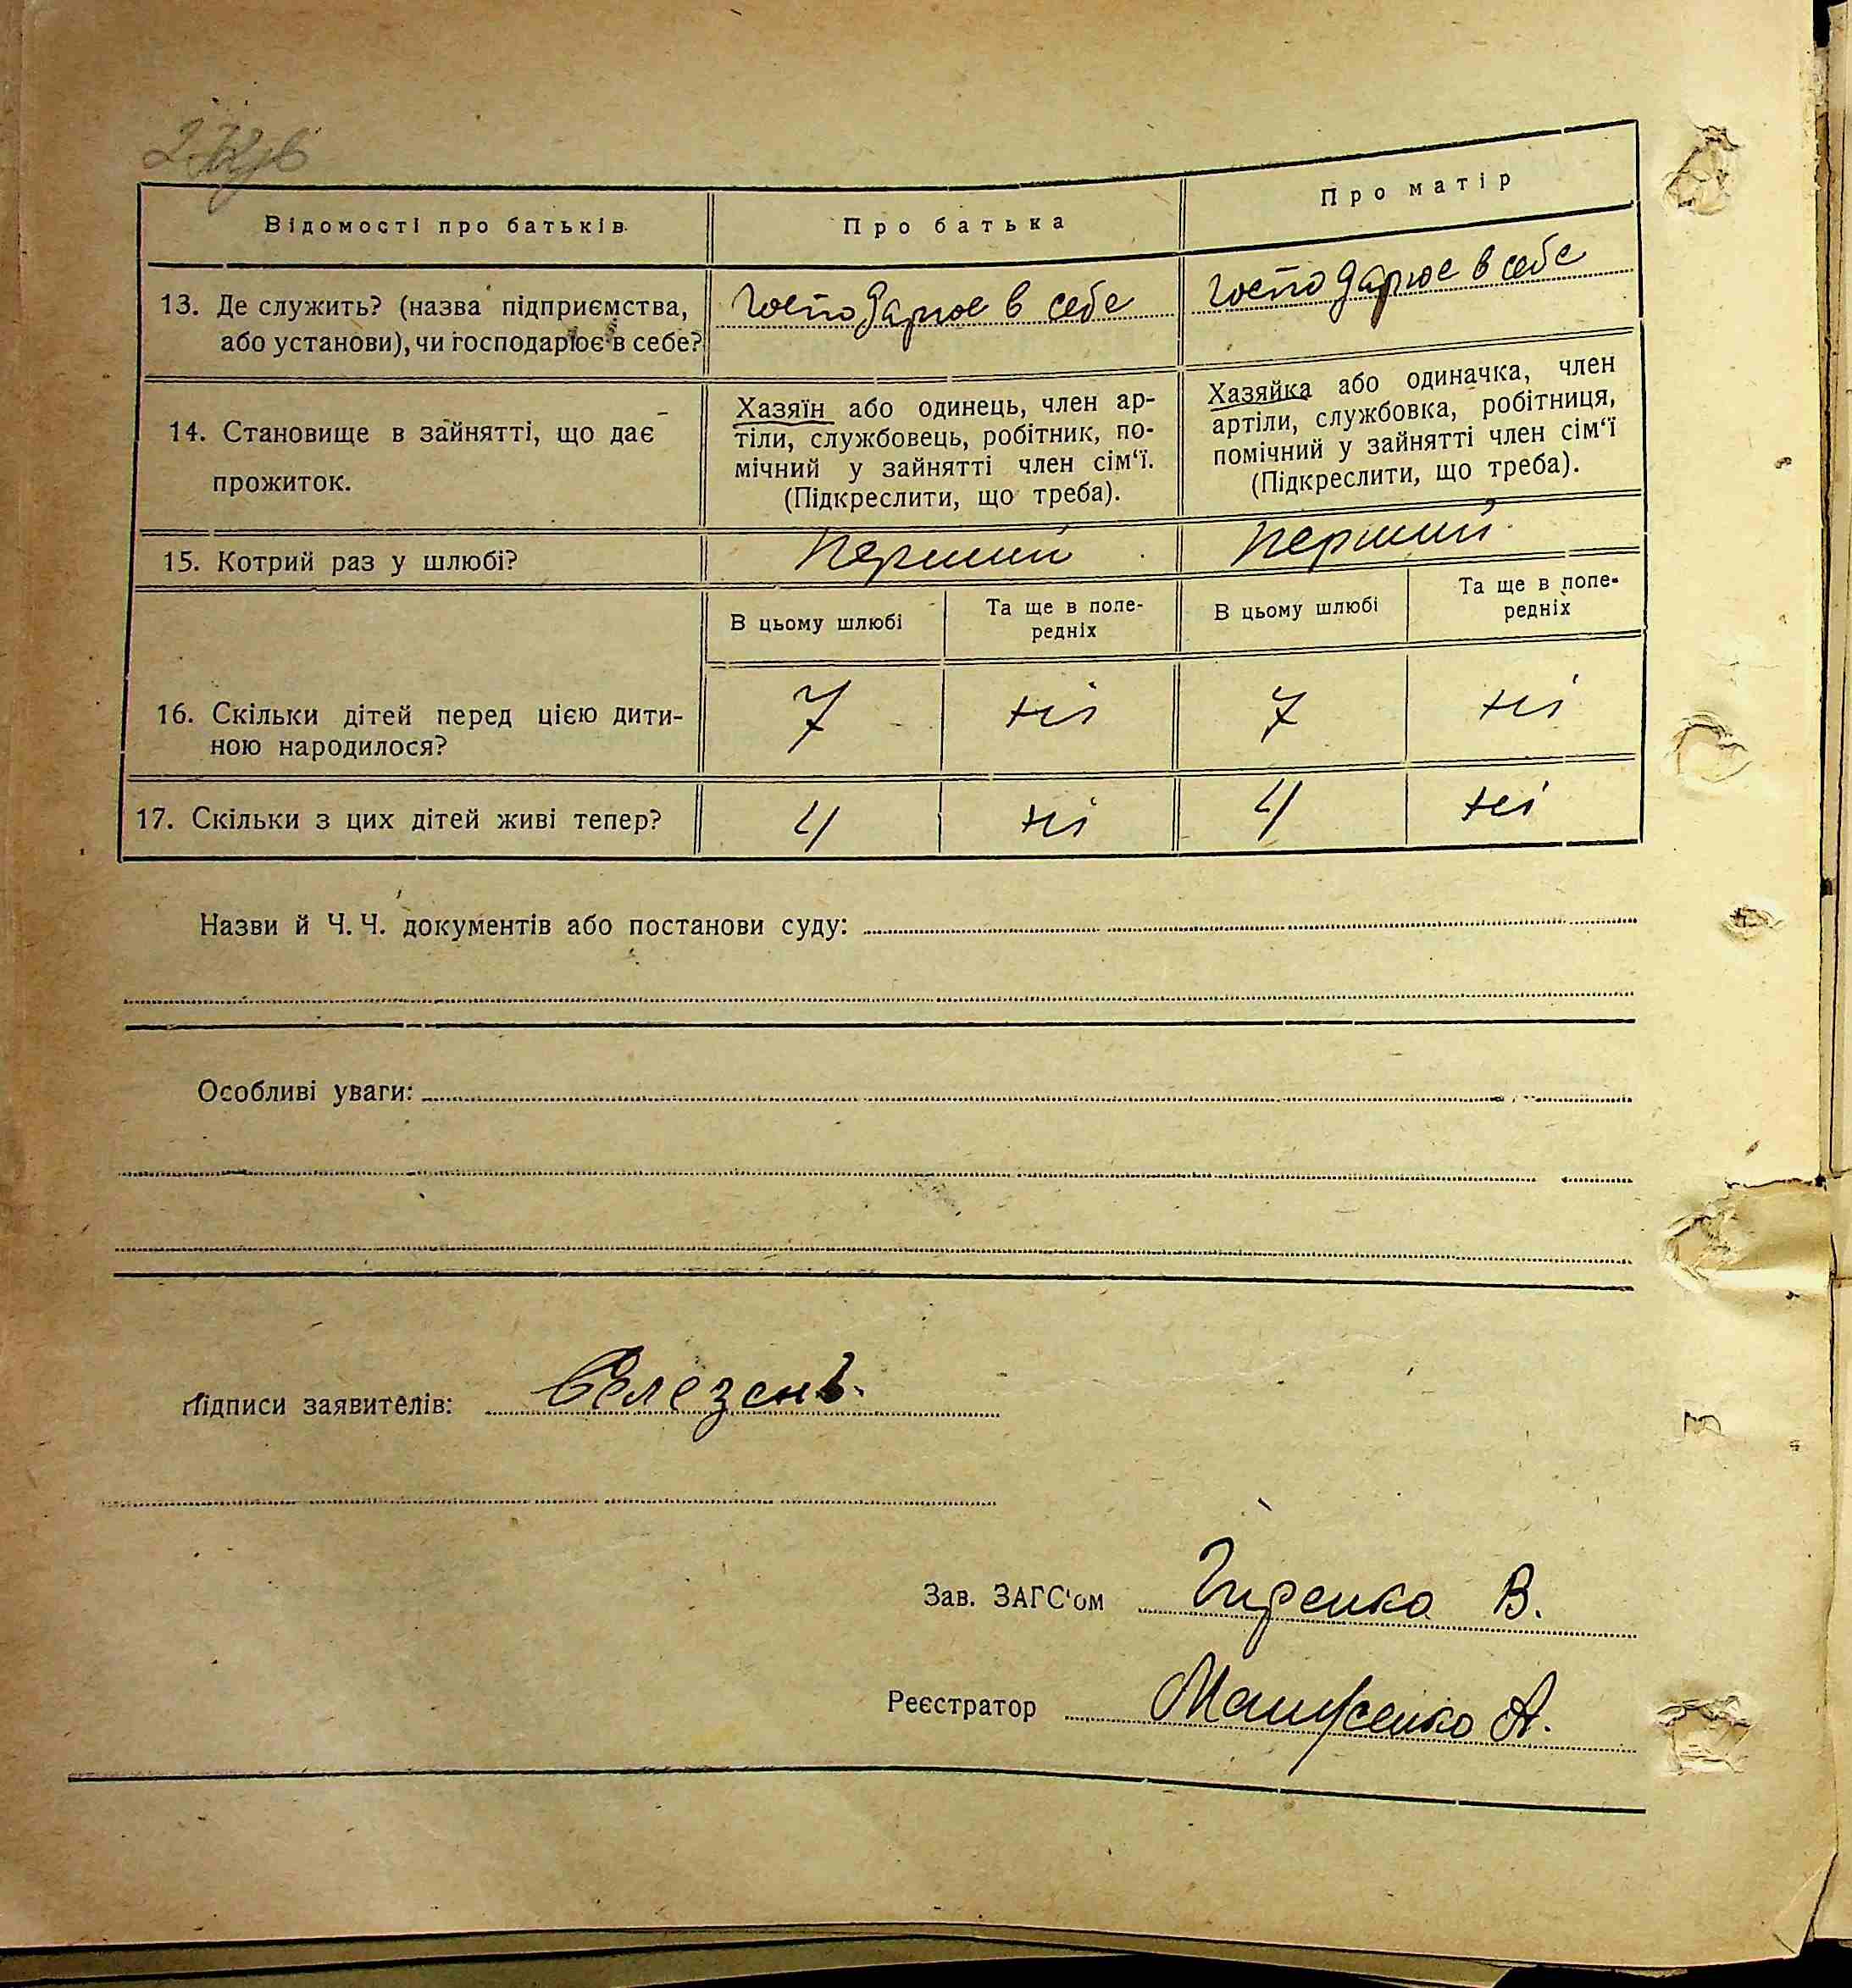 Відомості про батьків.
Про батька
Про матір
13. Де служить? (назва підприємства,
або установи), чи господарює в себе?
господарює в себе
господарює в себе
14. Становище в зайнятті, що дає
прожиток.
Хазяїн або одинець, член ар-
тіли, службовець, робітник, по-
мічний у зайнятті член сім'ї.
(Підкреслити, що треба).
Хазяйка або одиначка, член
артіли, службовка, робітниця,
помічний у зайнятті член сім'ї
(Підкреслити, що треба).
15. Котрий раз у шлюбі?
перший
перший
В цьому шлюбі
Та ще в попе-
редніх
В цьому шлюбі
Та ще в попе-
редніх
16. Скільки дітей перед цією дити-
ною народилося?
7
ні
7
ні
17. Скільки з цих дітей живі тепер?
4
ні
4
ні
Назви й Ч. Ч. документів або постанови суду:
Особливі уваги:
Підписи заявителів: Селезень
Зав. ЗАГС'ом Гиренко В.
Реєстратор А.